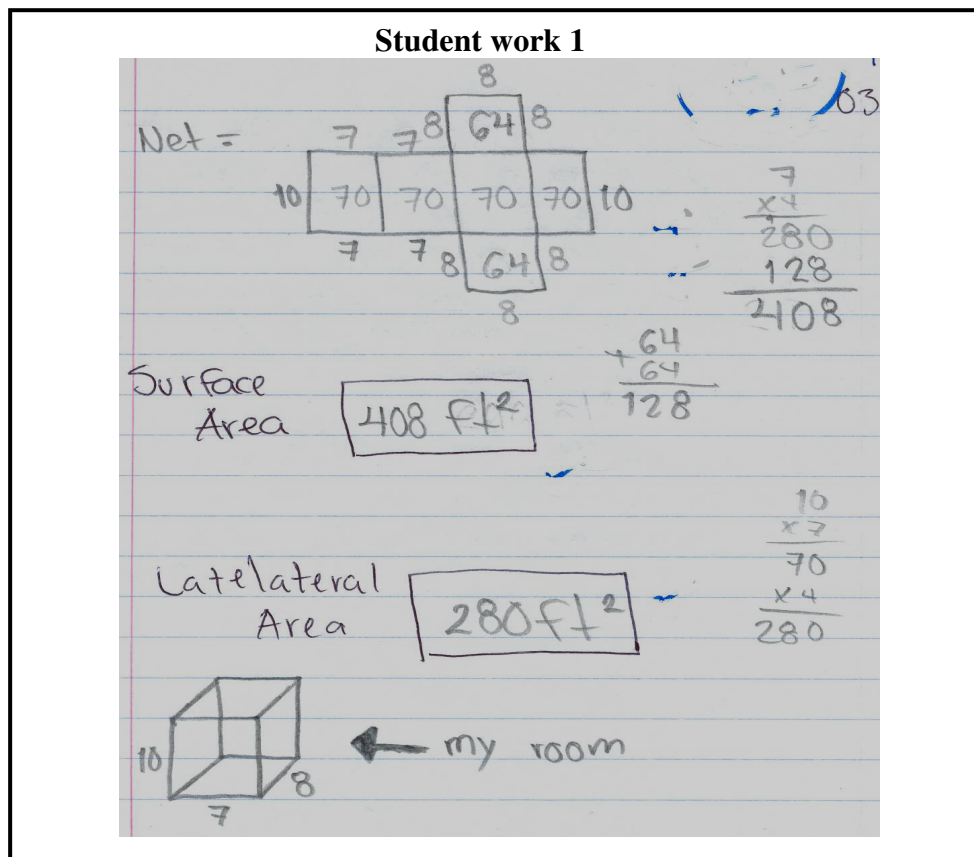 Student work 1
8
03
Net = 7 7 8 64 8
10 70 70 70 70 10
7 7 8 64 8
8
7
x4
280
128
408
+ 64
64
128
Surface
Area 408 ft²
10
x 7
70
x 4
280
Latelateral
Area 280 ft²
10 8
7
my room